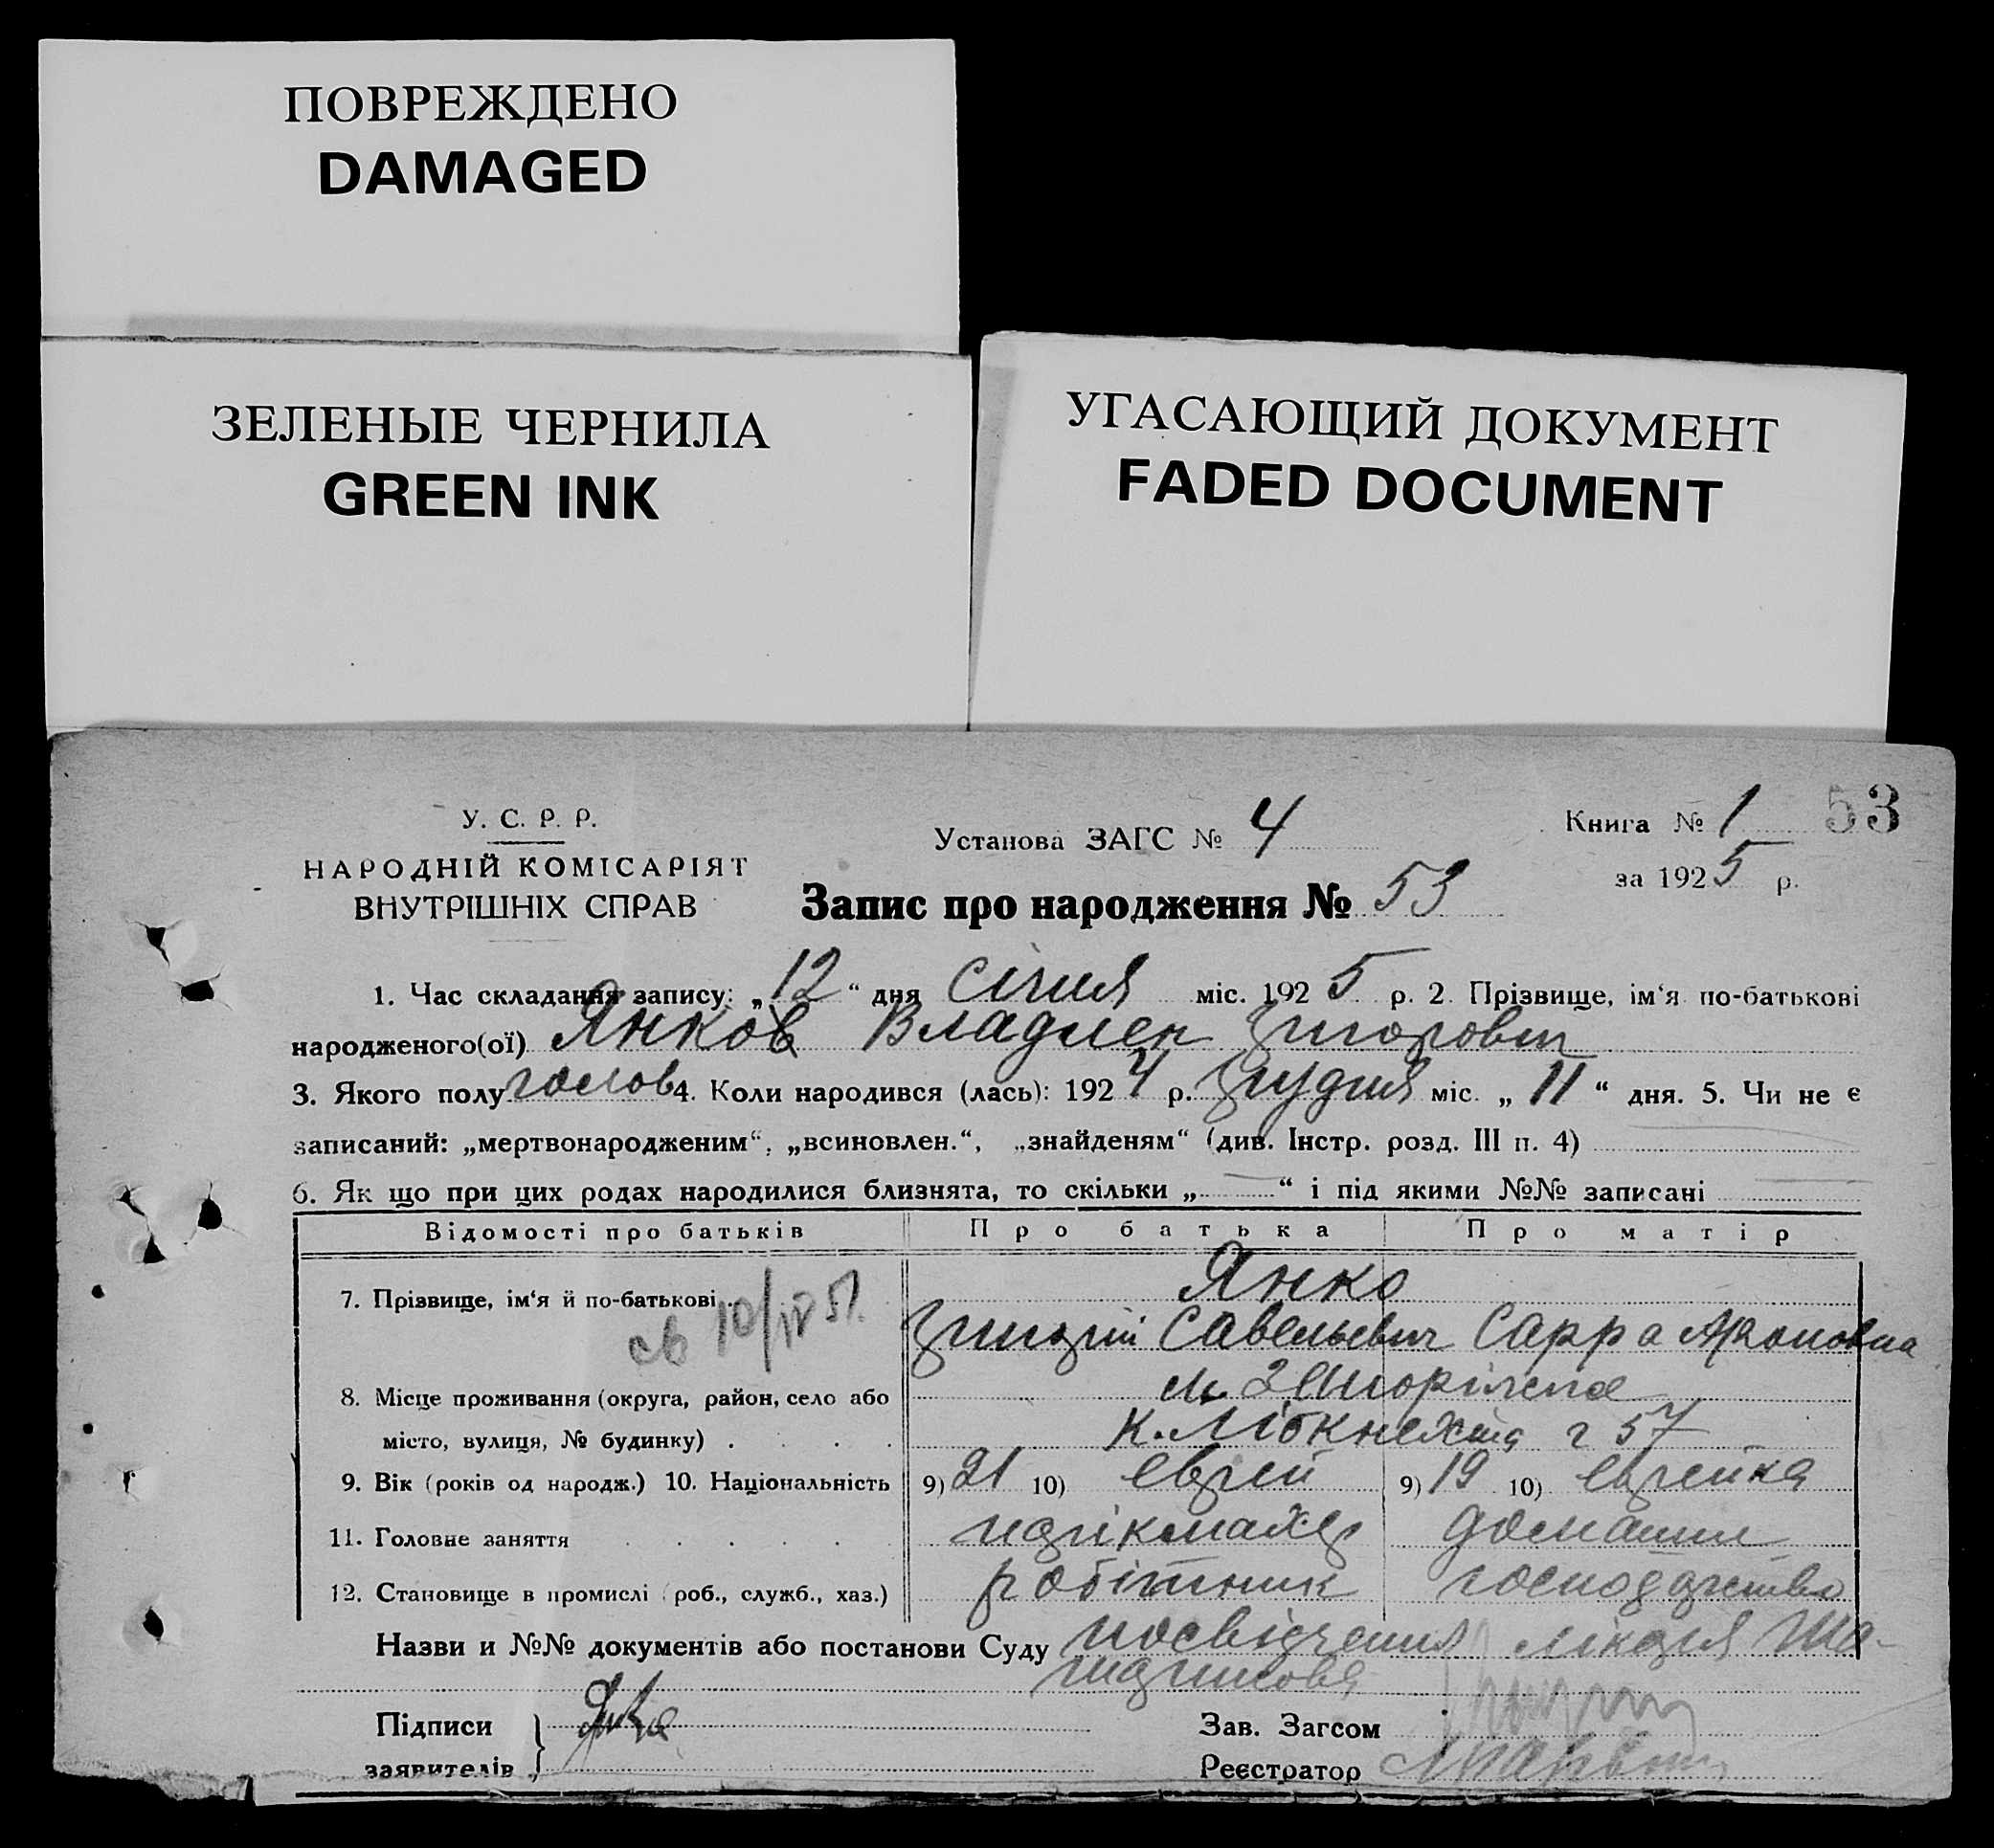 ПОВРЕЖДЕНО
DAMAGED
ЗЕЛЕНЫЕ ЧЕРНИЛА
GREEN INK
УГАСАЮЩИЙ ДОКУМЕНТ
FADED DOCUMENT
У. С. Р. Р.
НАРОДНІЙ КОМІСАРІЯТ
ВНУТРІШНІХ СПРАВ
Установа ЗАГС № 4
Книга № 1 53
за 1925 р.
Запис про народження № 53
1. Час складання запису: „12“ дня Січня міс. 1925 р. 2. Прізвище, ім‘я по-батькові
народженого(ої) Янков Владлен Григорович
3. Якого полу голов 4. Коли народився (лась): 1924 р. Грудня міс. „11“ дня. 5. Чи не є
записаний: „мертвонародженим“, „всиновлен.“, „знайденям“ (див. Інстр. розд. III п. 4)
6. Як що при цих родах народилися близнята, то скільки „—“ і під якими №№ записані
Відомості про батьків Про батька Про матір
7. Прізвище, ім‘я й по-батькові Янко
св 10/IV 51.
Григорій Савельевич Сарра Ароновна
8. Місце проживання (округа, район, село або
місто, вулиця, № будинку) К. Лібкнехта 57
9. Вік (років од народж.) 10. Національність 9) 21 10) еврей 9) 19 10) еврейка
11. Головне заняття парікмахер домашнє
12. Становище в промислі (роб., служб., хаз.) робітник господарство
Назви и №№ документів або постанови Суду посвідчення лікаря
Підписи
заявителів
Зав. Загсом
Реєстратор